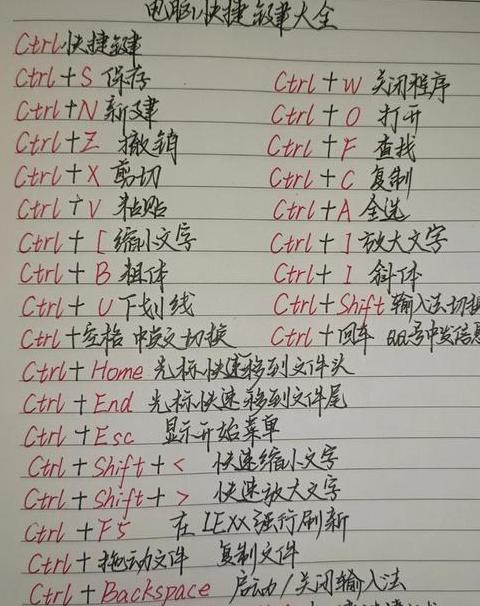 电脑快捷键大全
Ctrl快捷键
Ctrl+S 保存 Ctrl+W 关闭程序
Ctrl+N 新建 Ctrl+O 打开
Ctrl+Z 撤销 Ctrl+F 查找
Ctrl+X 剪切 Ctrl+C 复制
Ctrl+V 粘贴 Ctrl+A 全选
Ctrl+[ 缩小文字 Ctrl+] 放大文字
Ctrl+B 粗体 Ctrl+I 斜体
Ctrl+U 下划线 Ctrl+Shift 输入法切换
Ctrl+空格 中英文切换 Ctrl+回车 QQ号中发信息
Ctrl+Home 光标快速移到文件头
Ctrl+End 光标快速移到文件尾
Ctrl+Esc 显示开始菜单
Ctrl+Shift+< 快速缩小文字
Ctrl+Shift+> 快速放大文字
Ctrl+F5 在IEXX强行刷新
Ctrl+拖动文件 复制文件
Ctrl+Backspace 启动/关闭输入法